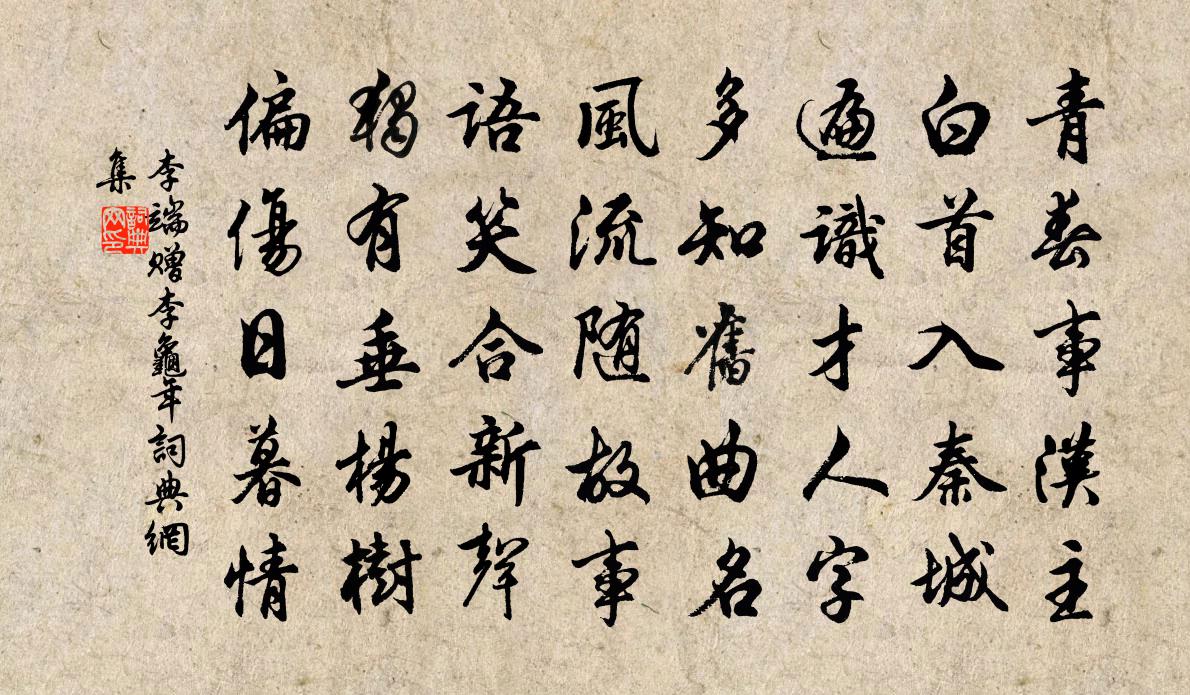 青春事漢主
白首入秦城
遍識才人字
多知舊曲名
風流随故事
語笑合新聲
獨有垂楊樹
偏傷日暮情
李端贈李龜年詞典網
集
詞典
网印